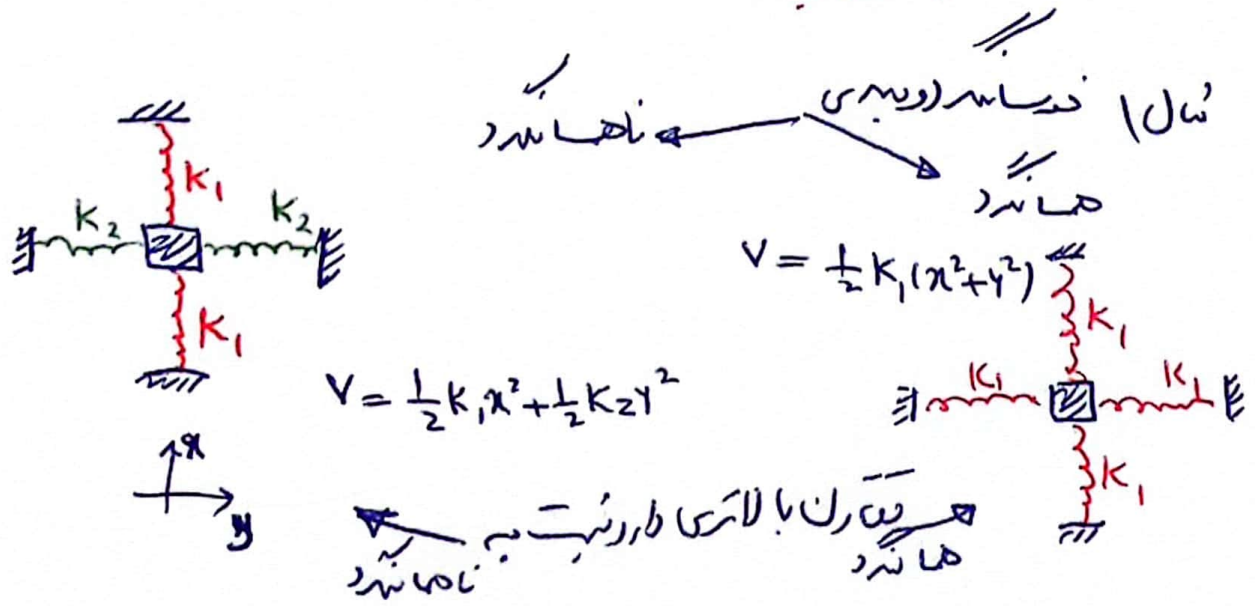 مثال ۱ نوسانگر دوبعدی
ناهمسانگرد
همسانگرد
V = 1/2 K₁(x²+y²)
K₁
K₁ K₁
K₁
K₁
K₂ K₂
K₁
V = 1/2 K₁x² + 1/2 K₂y²
x
y
همسانگرد تقارن بالاتری دارد نسبت به ناهمسانگرد